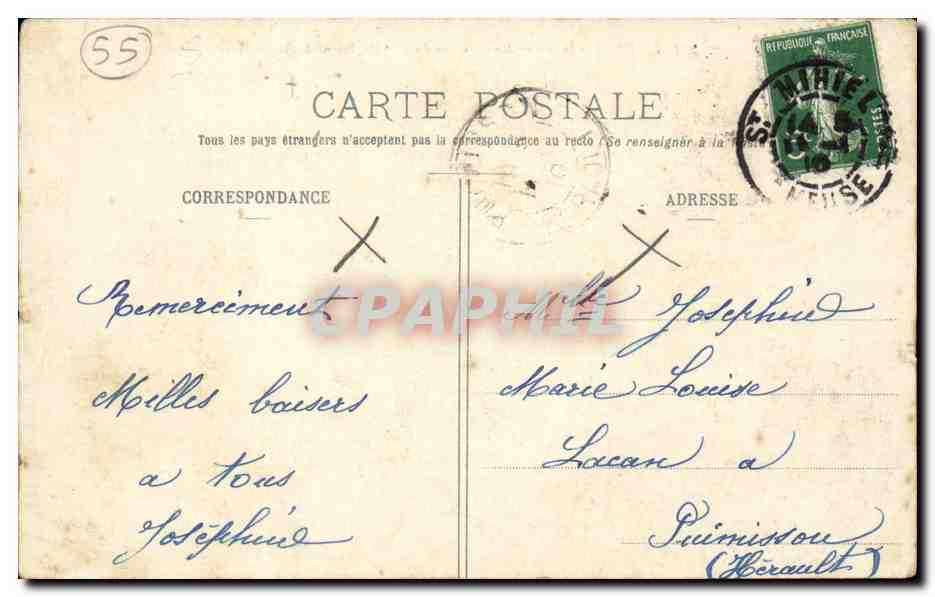 55
CARTE POSTALE
Tous les pays étrangers n'acceptent pas la correspondance au recto (Se renseigner à la Poste)
CORRESPONDANCE
ADRESSE
REPUBLIQUE FRANÇAISE
POSTES
ST. MIHIEL
MEUSE
Remerciment
Milles baisers
a tous
Joséphine
Mlle Joséphine
Marie Louise
Lacan a
Puimisson
(Hérault)
CPAPHIL